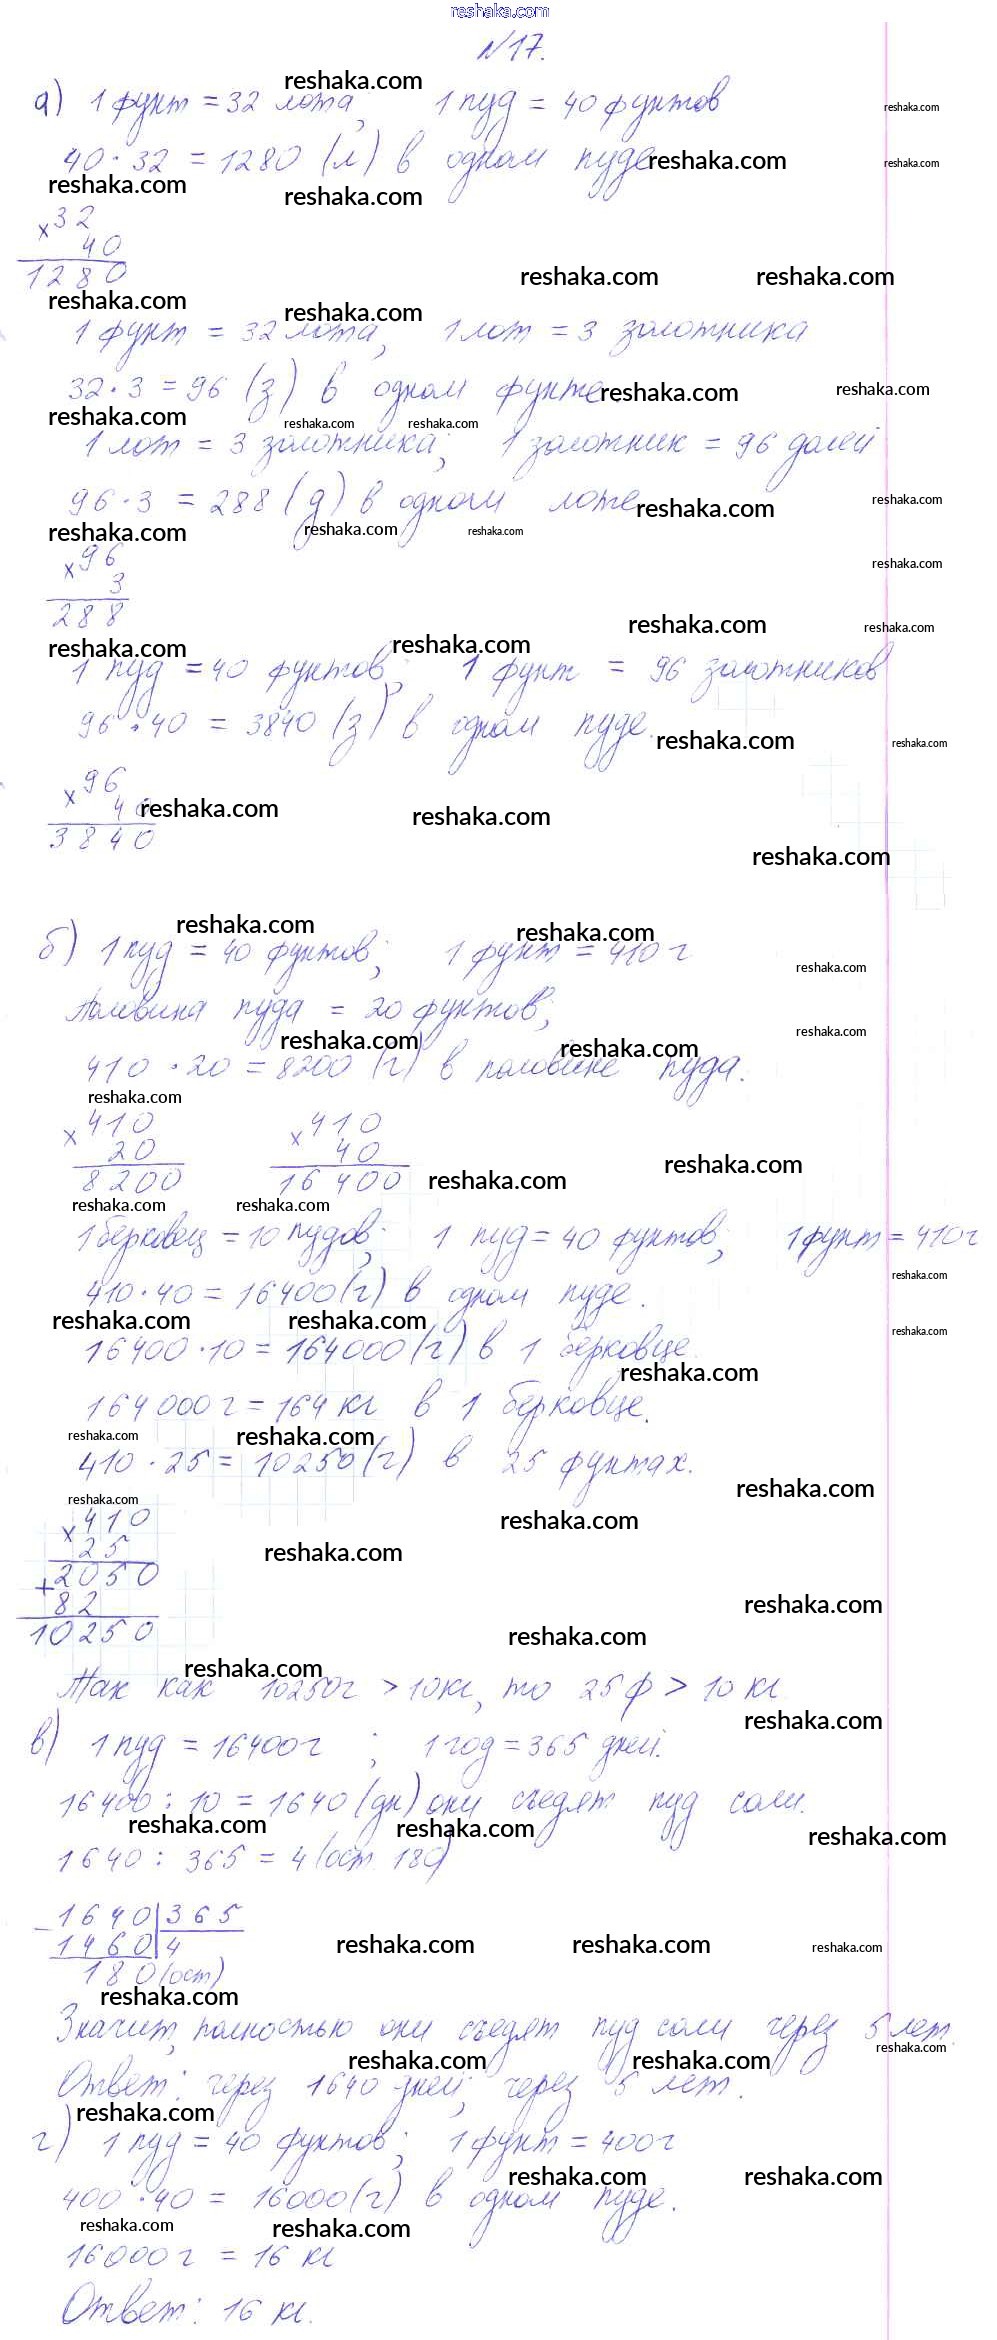 reshaka.com
№17.
а) 1 фунт = 32 лота, 1 пуд = 40 фунтов
40 · 32 = 1280 (л) в одном пуде
×32
40
1280
1 фунт = 32 лота, 1 лот = 3 золотника
32 · 3 = 96 (з) в одном фунте
1 лот = 3 золотника; 1 золотник = 96 долей
96 · 3 = 288 (д) в одном лоте
×96
3
288
1 пуд = 40 фунтов; 1 фунт = 96 золотников
96 · 40 = 3840 (з) в одном пуде.
×96
40
3840
б) 1 пуд = 40 фунтов; 1 фунт = 410 г
Половина пуда = 20 фунтов;
410 · 20 = 8200 (г) в половине пуда.
×410 ×410
20 40
8200 16400
1 берковец = 10 пудов; 1 пуд = 40 фунтов; 1 фунт = 410 г
410 · 40 = 16400 (г) в одном пуде.
16400 · 10 = 164000 (г) в 1 берковце.
164000 г = 164 кг в 1 берковце.
410 · 25 = 10250 (г) в 25 фунтах.
×410
25
+2050
82
10250
Так как 10250 г > 10 кг, то 25 ф > 10 кг
в) 1 пуд = 16400 г ; 1 год = 365 дней.
16400 : 10 = 1640 (дн) они съедят пуд соли.
1640 : 365 = 4 (ост. 180)
-1640|365
1460|4
180 (ост)
Значит, полностью они съедят пуд соли через 5 лет.
Ответ: через 1640 дней; через 5 лет.
г) 1 пуд = 40 фунтов; 1 фунт = 400 г
400 · 40 = 16000 (г) в одном пуде.
16000 г = 16 кг
Ответ: 16 кг.